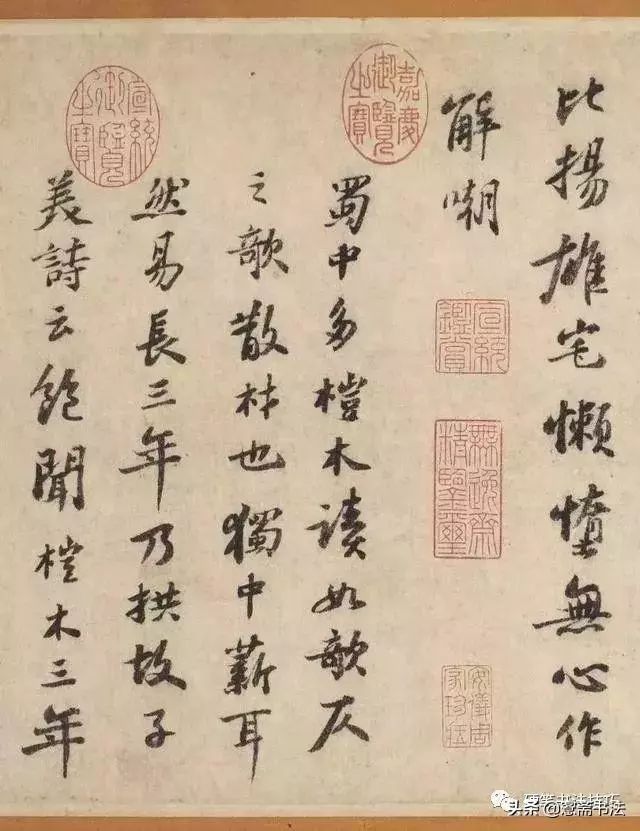 比揚雄宅懶惰無心作
解嘲
蜀中多榿木讀如欹仄
之欹散材也獨中薪耳
然易長三年乃拱故子
美詩云飽聞榿木三年
嘉慶御覽之寶
宣統鑑賞
無逸齋精鑒璽
安儀周家珍藏
宣統御覽之寶
硬笔书法技巧
头条 斋书法